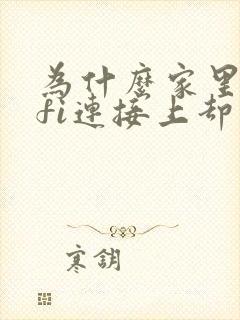 為什麼家里
fi連接上却
寒鈅